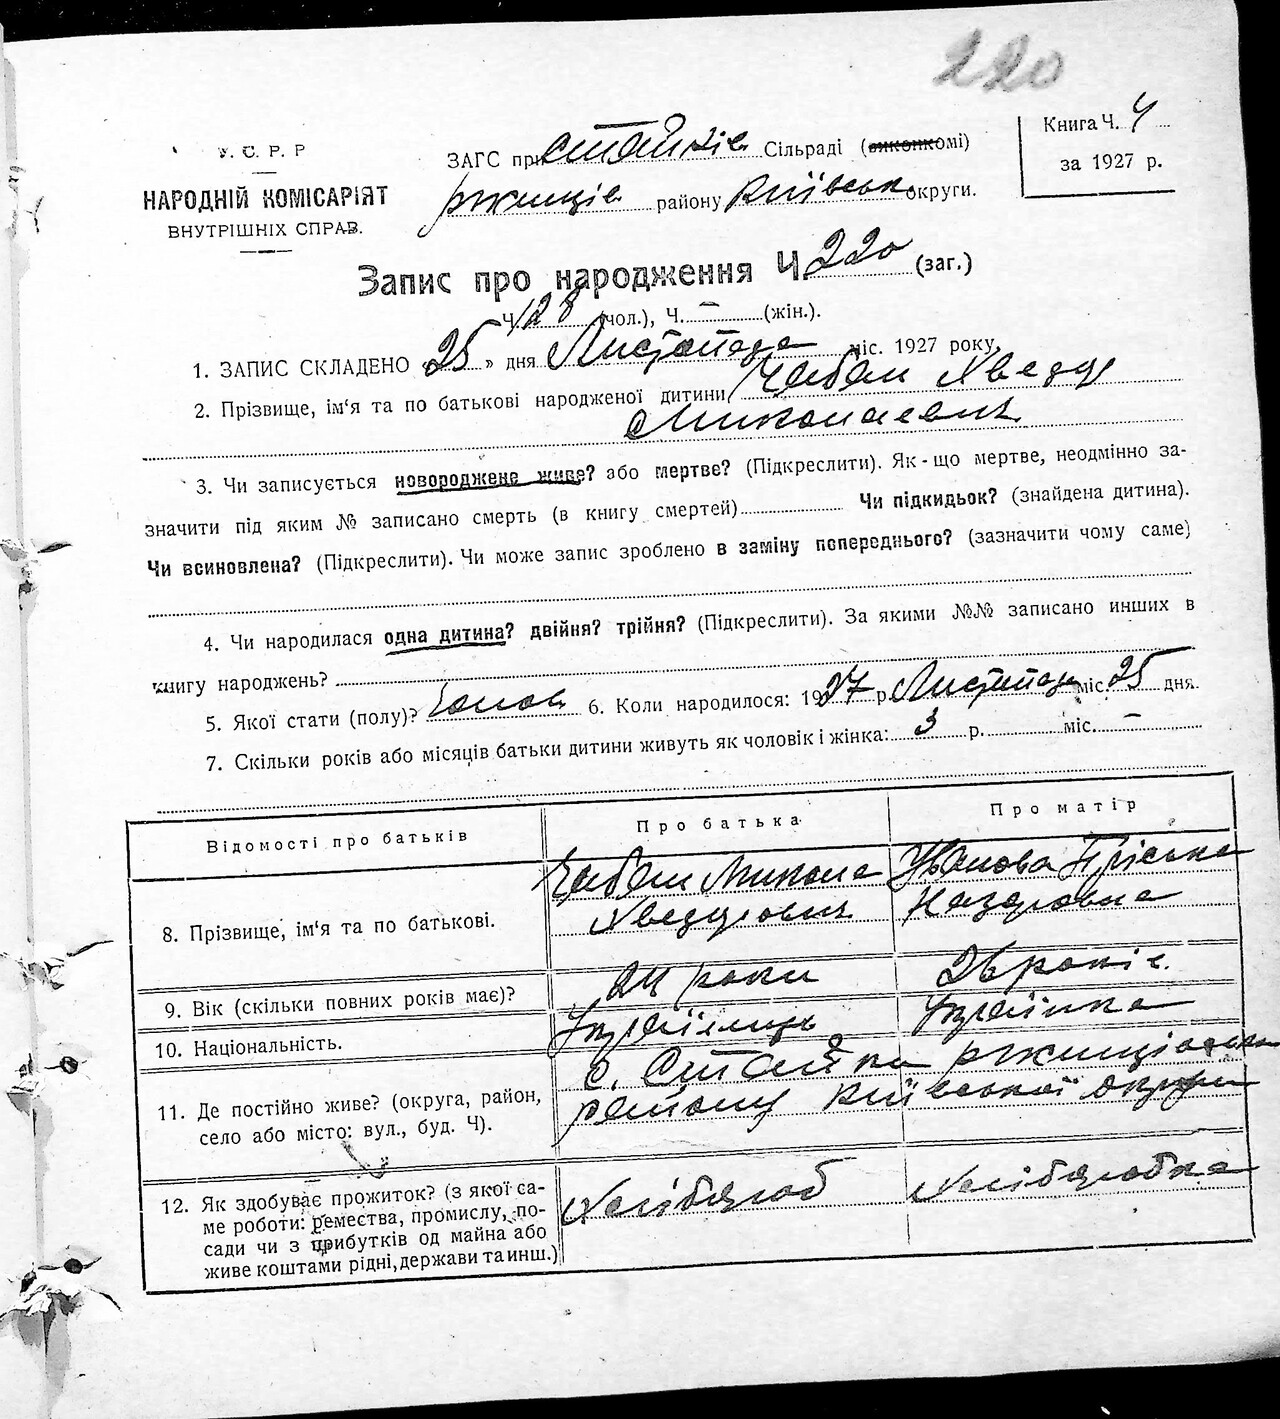 220
У. С. Р. Р
НАРОДНІЙ КОМІСАРІЯТ
ВНУТРІШНІХ СПРАВ.
ЗАГС при Стайків Сільраді (виконкомі)
Ржищів району Київськ округи.
Книга Ч. 4
за 1927 р.
Запис про народження Ч 220 (заг.)
Ч 128 (чол.), Ч. – (жін.).
1. ЗАПИС СКЛАДЕНО 25 » дня Листопада міс. 1927 року.
2. Прізвище, ім'я та по батькові народженої дитини Чабан Хведір
Миколаєвич
3. Чи записується новороджене живе? або мертве? (Підкреслити). Як-що мертве, неодмінно за-
значити під яким № записано смерть (в книгу смертей) Чи підкидьок? (знайдена дитина).
Чи всиновлена? (Підкреслити). Чи може запис зроблено в заміну попереднього? (зазначити чому саме)
4. Чи народилася одна дитина? двійня? трійня? (Підкреслити). За якими №№ записано инших в
книгу народжень?
5. Якої стати (полу)? 6. Коли народилося: 1927 р. Листопада міс. 25 дня.
7. Скільки років або місяців батьки дитини живуть як чоловік і жінка: 3 р. міс. –
Відомості про батьків Про батька Про матір
8. Прізвище, ім'я та по батькові.
Чабан Микола
Хведорович
Іванова Пріська
Назаровна
9. Вік (скільки повних років має)? 24 роки 26 років
10. Національність. Українець Українка
11. Де постійно живе? (округа, район,
село або місто: вул., буд. Ч).
с. Стайки Ржищівськ
району Київської округи
12. Як здобуває прожиток? (з якої са-
ме роботи: ремества, промислу, по-
сади чи з прибутків од майна або
живе коштами рідні, держави та инш.)
Хлібороб Хліборобка